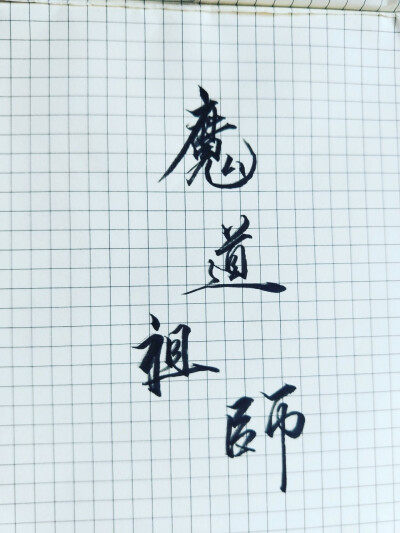 魔
道
祖
師